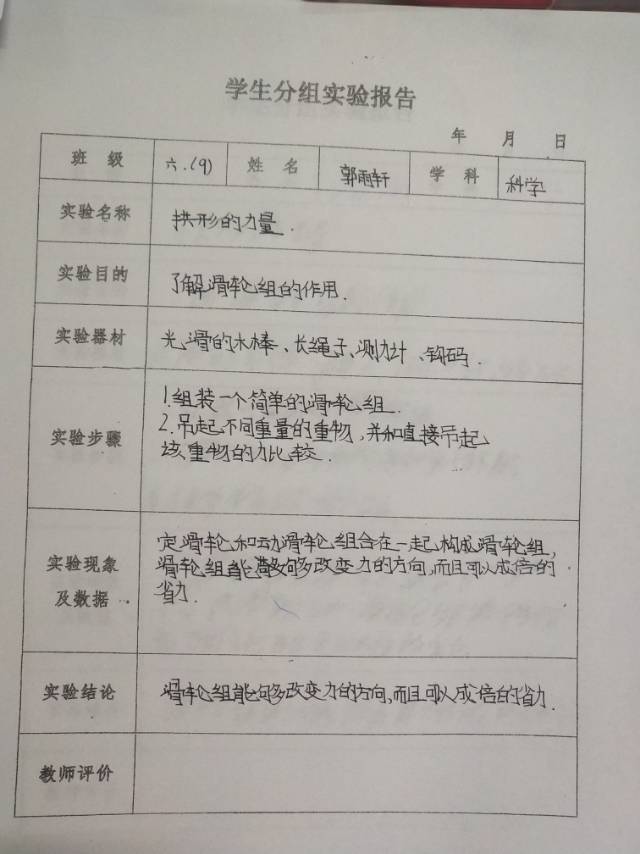 学生分组实验报告
年 月 日
班 级 六.(9) 姓 名 郭雨轩 学 科 科学
实验名称 拱形的力量.
实验目的 了解滑轮组的作用.
实验器材 光滑的木棒、长绳子、测力计、钩码.
实验步骤
1.组装一个简单的滑轮组.
2.吊起不同重量的重物,并和直接吊起
该重物的力比较.
实验现象
及数据
定滑轮和动滑轮组合在一起构成滑轮组,
滑轮组能够改变力的方向,而且可以成倍的
省力.
实验结论 滑轮组能够改变力的方向,而且可以成倍的省力.
教师评价